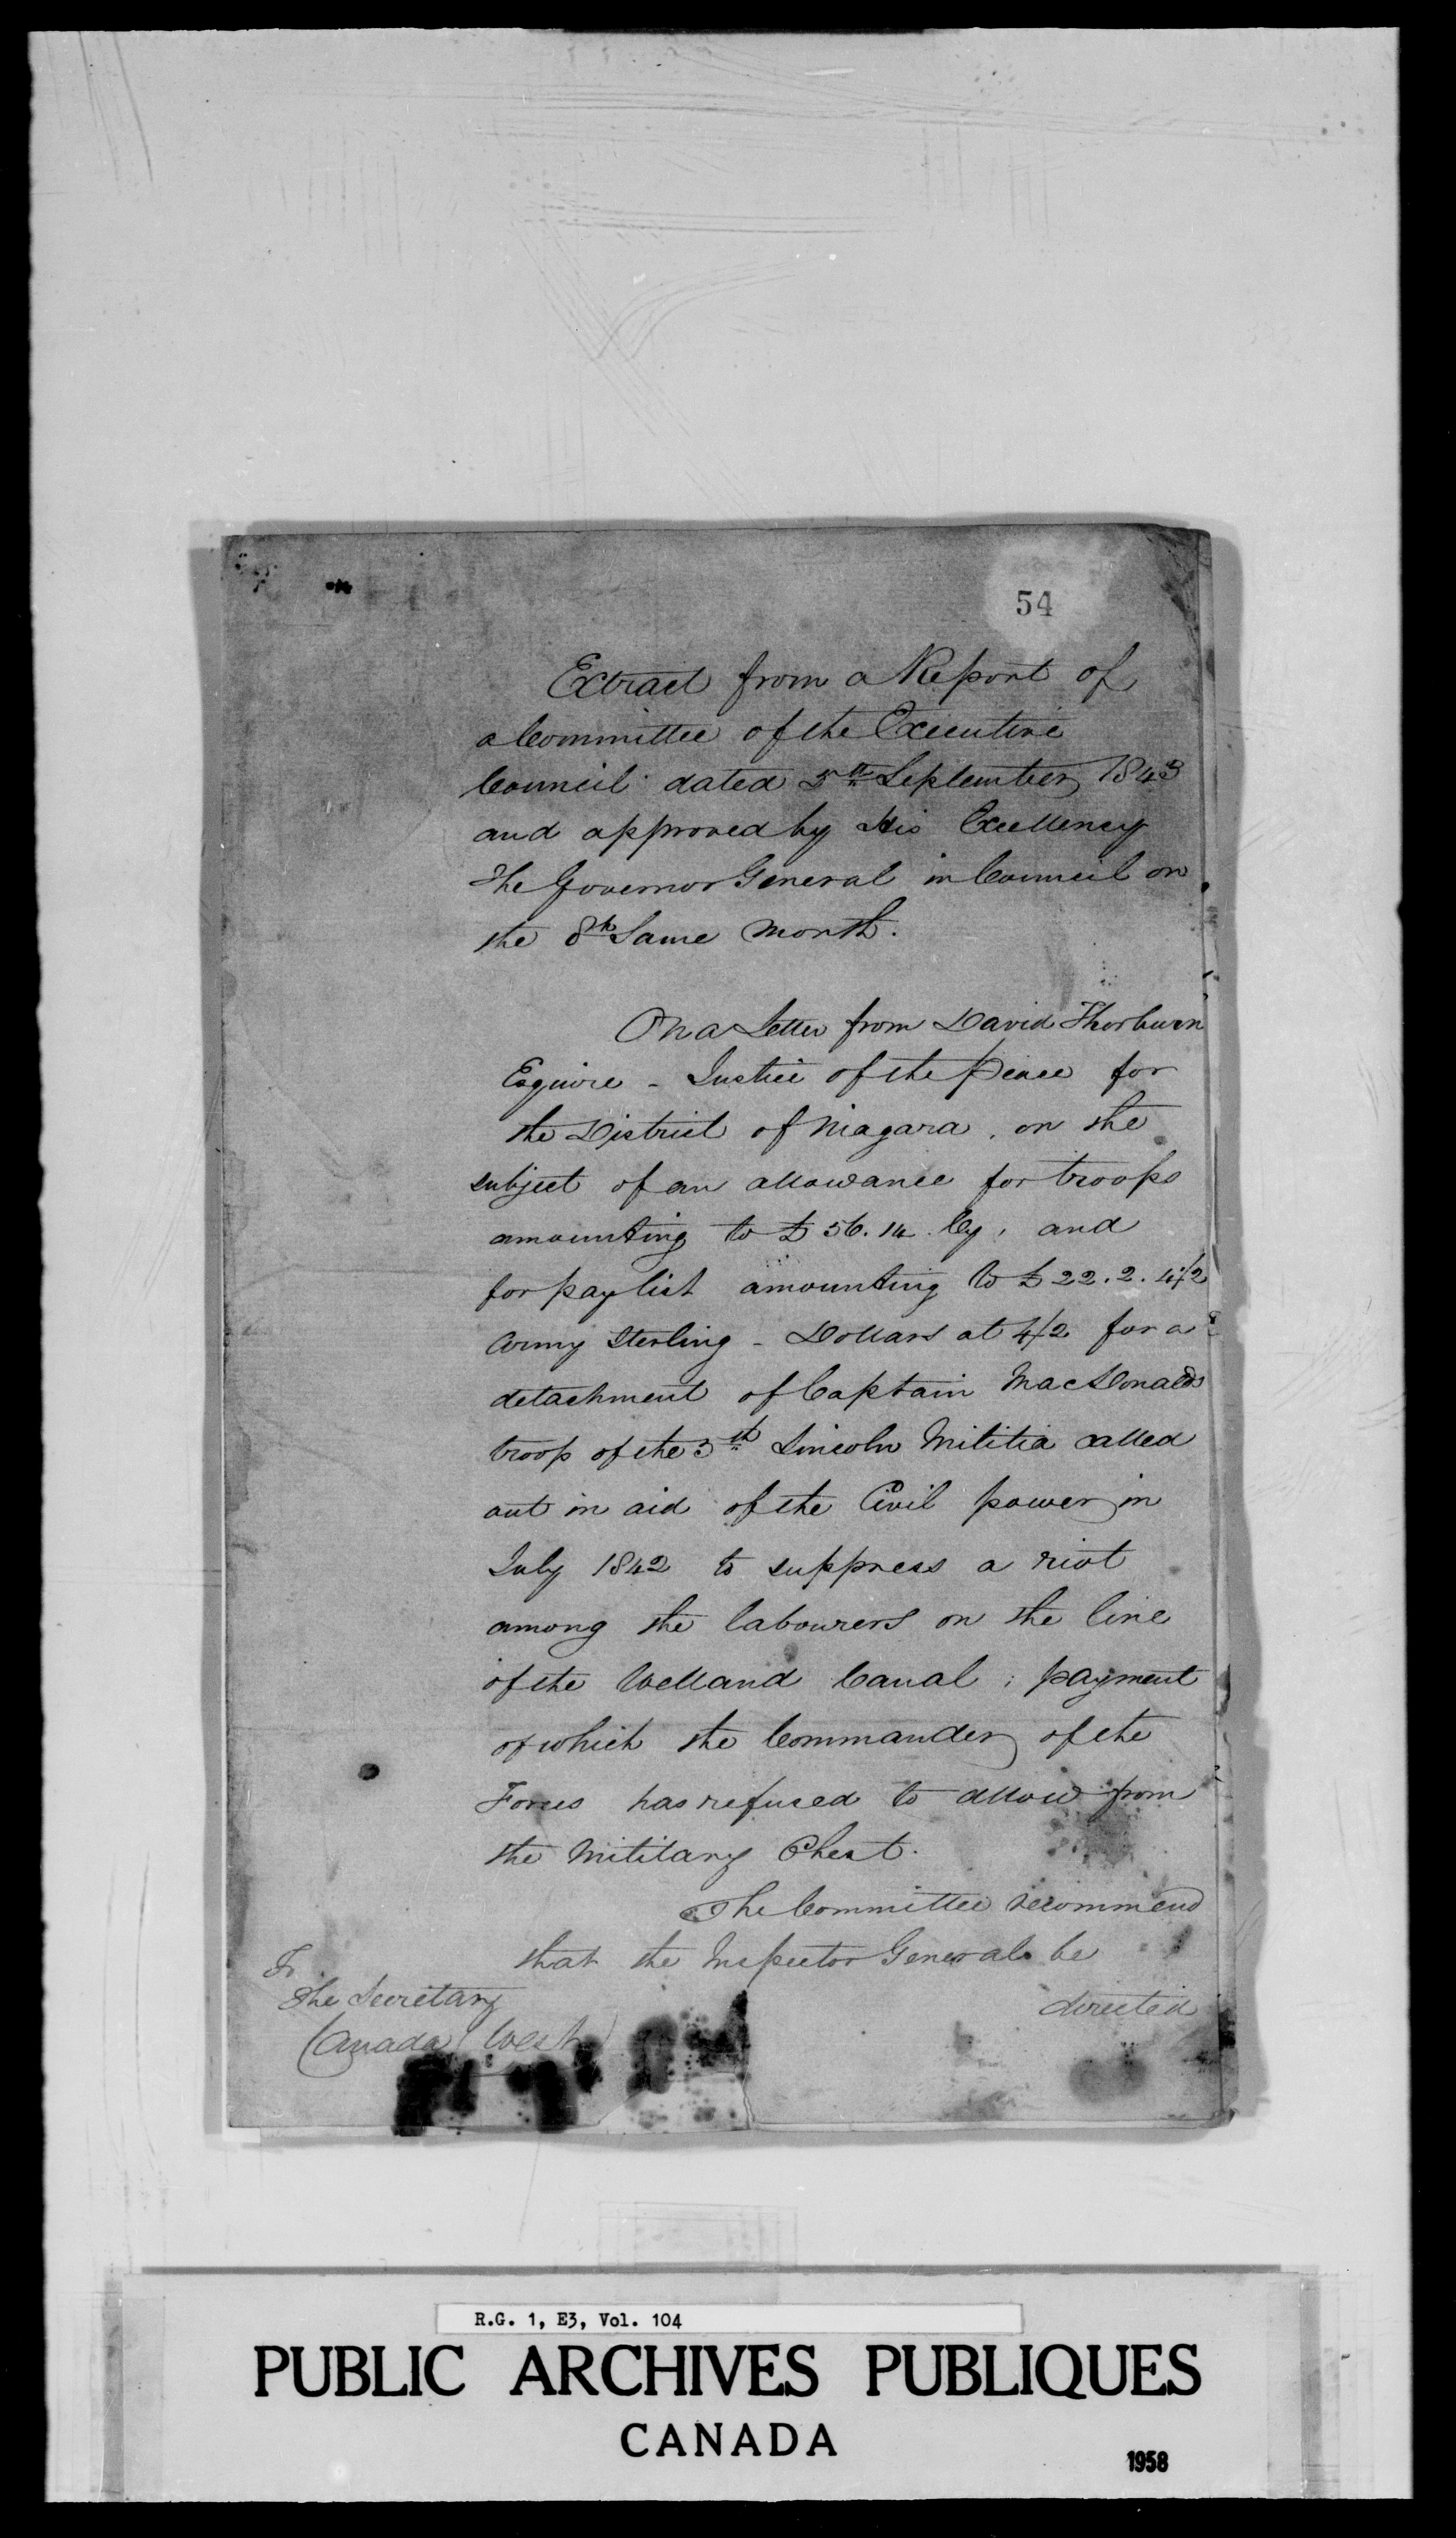 54
Extract from a Report of
a Committee of the Executive
Council dated 5th September 1843
and approved by His Excellency
The Governor General in Council on
the 8th Same Month.
On a Letter from David Thorburn
Esquire - Justice of the Peace for
the District of Niagara, on the
subject of an allowance for troops
amounting to £ 56. 14. Cy, and
for pay list amounting to £ 22. 2. 4½
Army Sterling - Dollars at 4/2 for a
detachment of Captain MacDonalds
troop of the 3th Lincoln Militia called
out in aid of the Civil power in
July 1842 to suppress a riot
among the labourers on the line
of the Welland Canal; payment
of which the Commander of the
Forces has refused to allow from
the Military Chest.
The Committee recommend
that the Inspector General be
directed
To
The Secretary
Canada West
R.G. 1, E3, Vol. 104
PUBLIC ARCHIVES PUBLIQUES
CANADA
1958